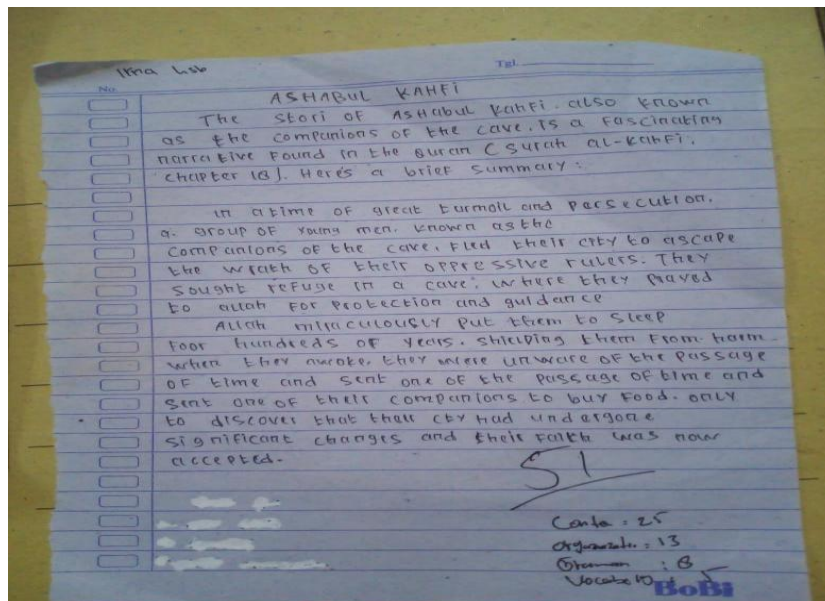 Irna Lsb
Tgl.
No.
ASHABUL KAHFI
The stori of ASHabul kahfi. also known
as the companions of the cave. is a fascinating
narrative found in the Quran (surah al-kahfi,
chapter 18). Here's a brief summary :
in atime of great turmoil and persecution,
a. group of young men. known as the
companions of the cave, fled their city to ascape
the wrath of their oppressive rulers. They
sought refuge in a cave, where they prayed
to allah for protection and guidance
Allah miraculously put them to sleep
foor hundreds of years. shielping them from harm
when they awoke, they were unware of the passage
of time and sent one of the passage of time and
sent one of their companions to buy food. only
to discover that their cty had undergone
significant changes and their faith was now
accepted.
51
: 25
: 13
: 8
: 5
BoBi